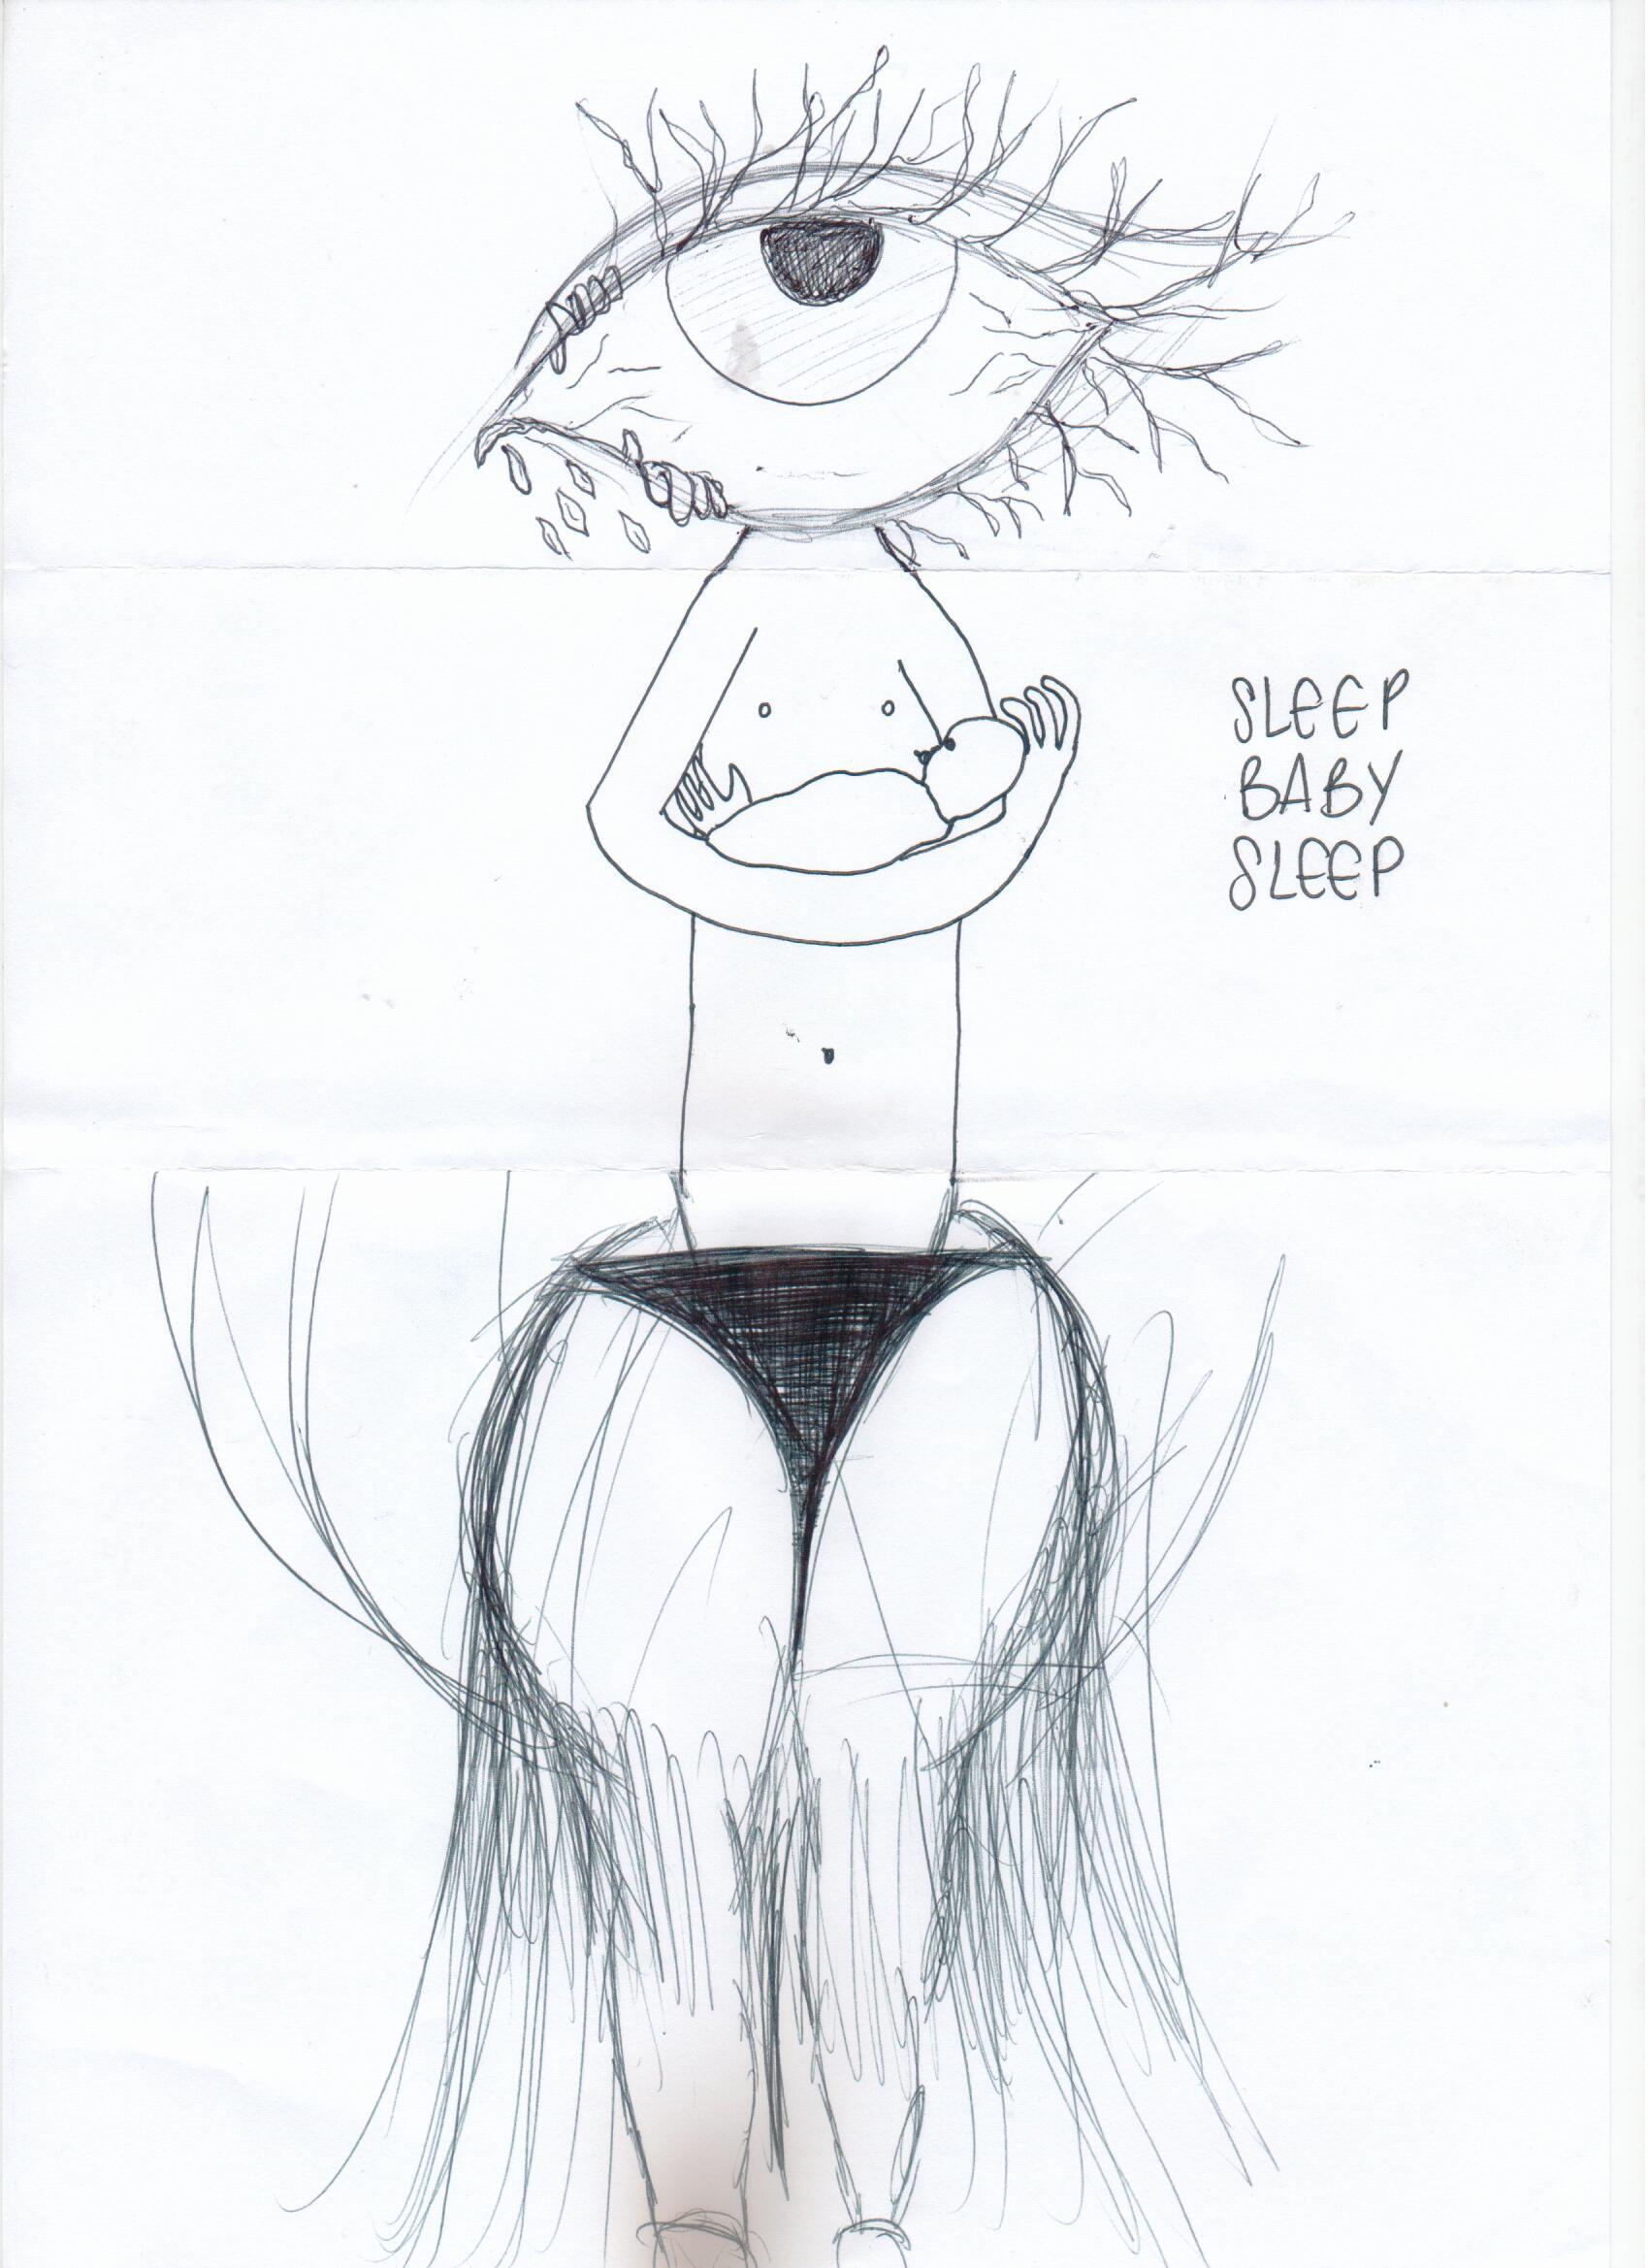 SLEEP
BABY
SLEEP